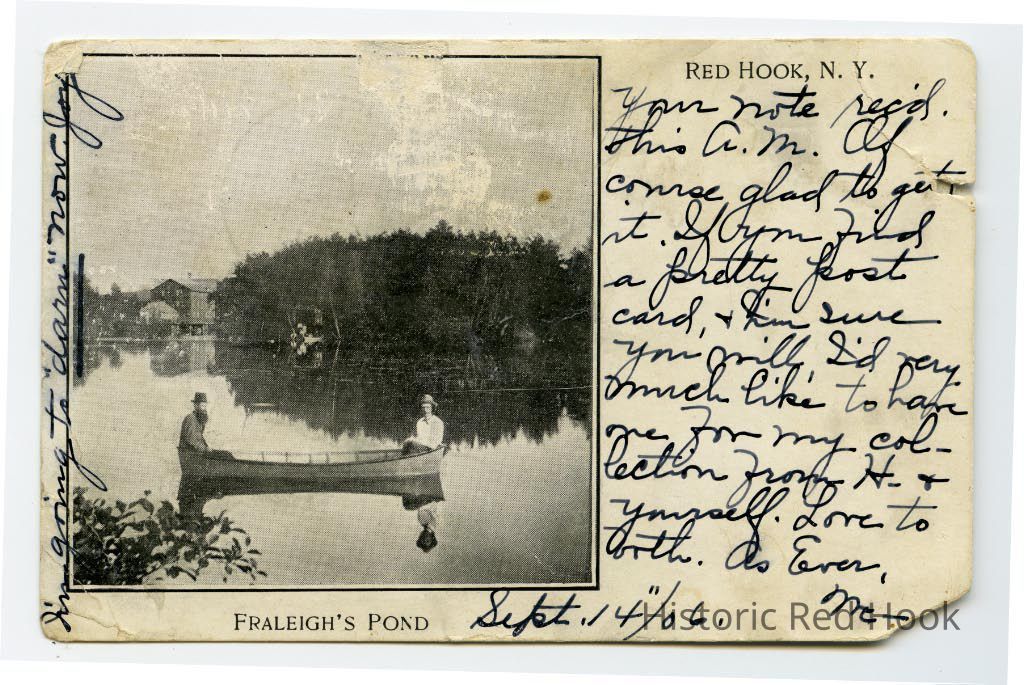 RED HOOK, N. Y.
Your note rec'd.
this A. M. Of
course glad to get
it. If you find
a pretty post
card, & I'm sure
you will, I'd very
much like to have
one for my col-
lection from H. &
yourself. Love to
both. As Ever,
Mc
Sept. 14"/06.
FRALEIGH'S POND
I'm going to "darn" now. Joy
Historic Red Hook